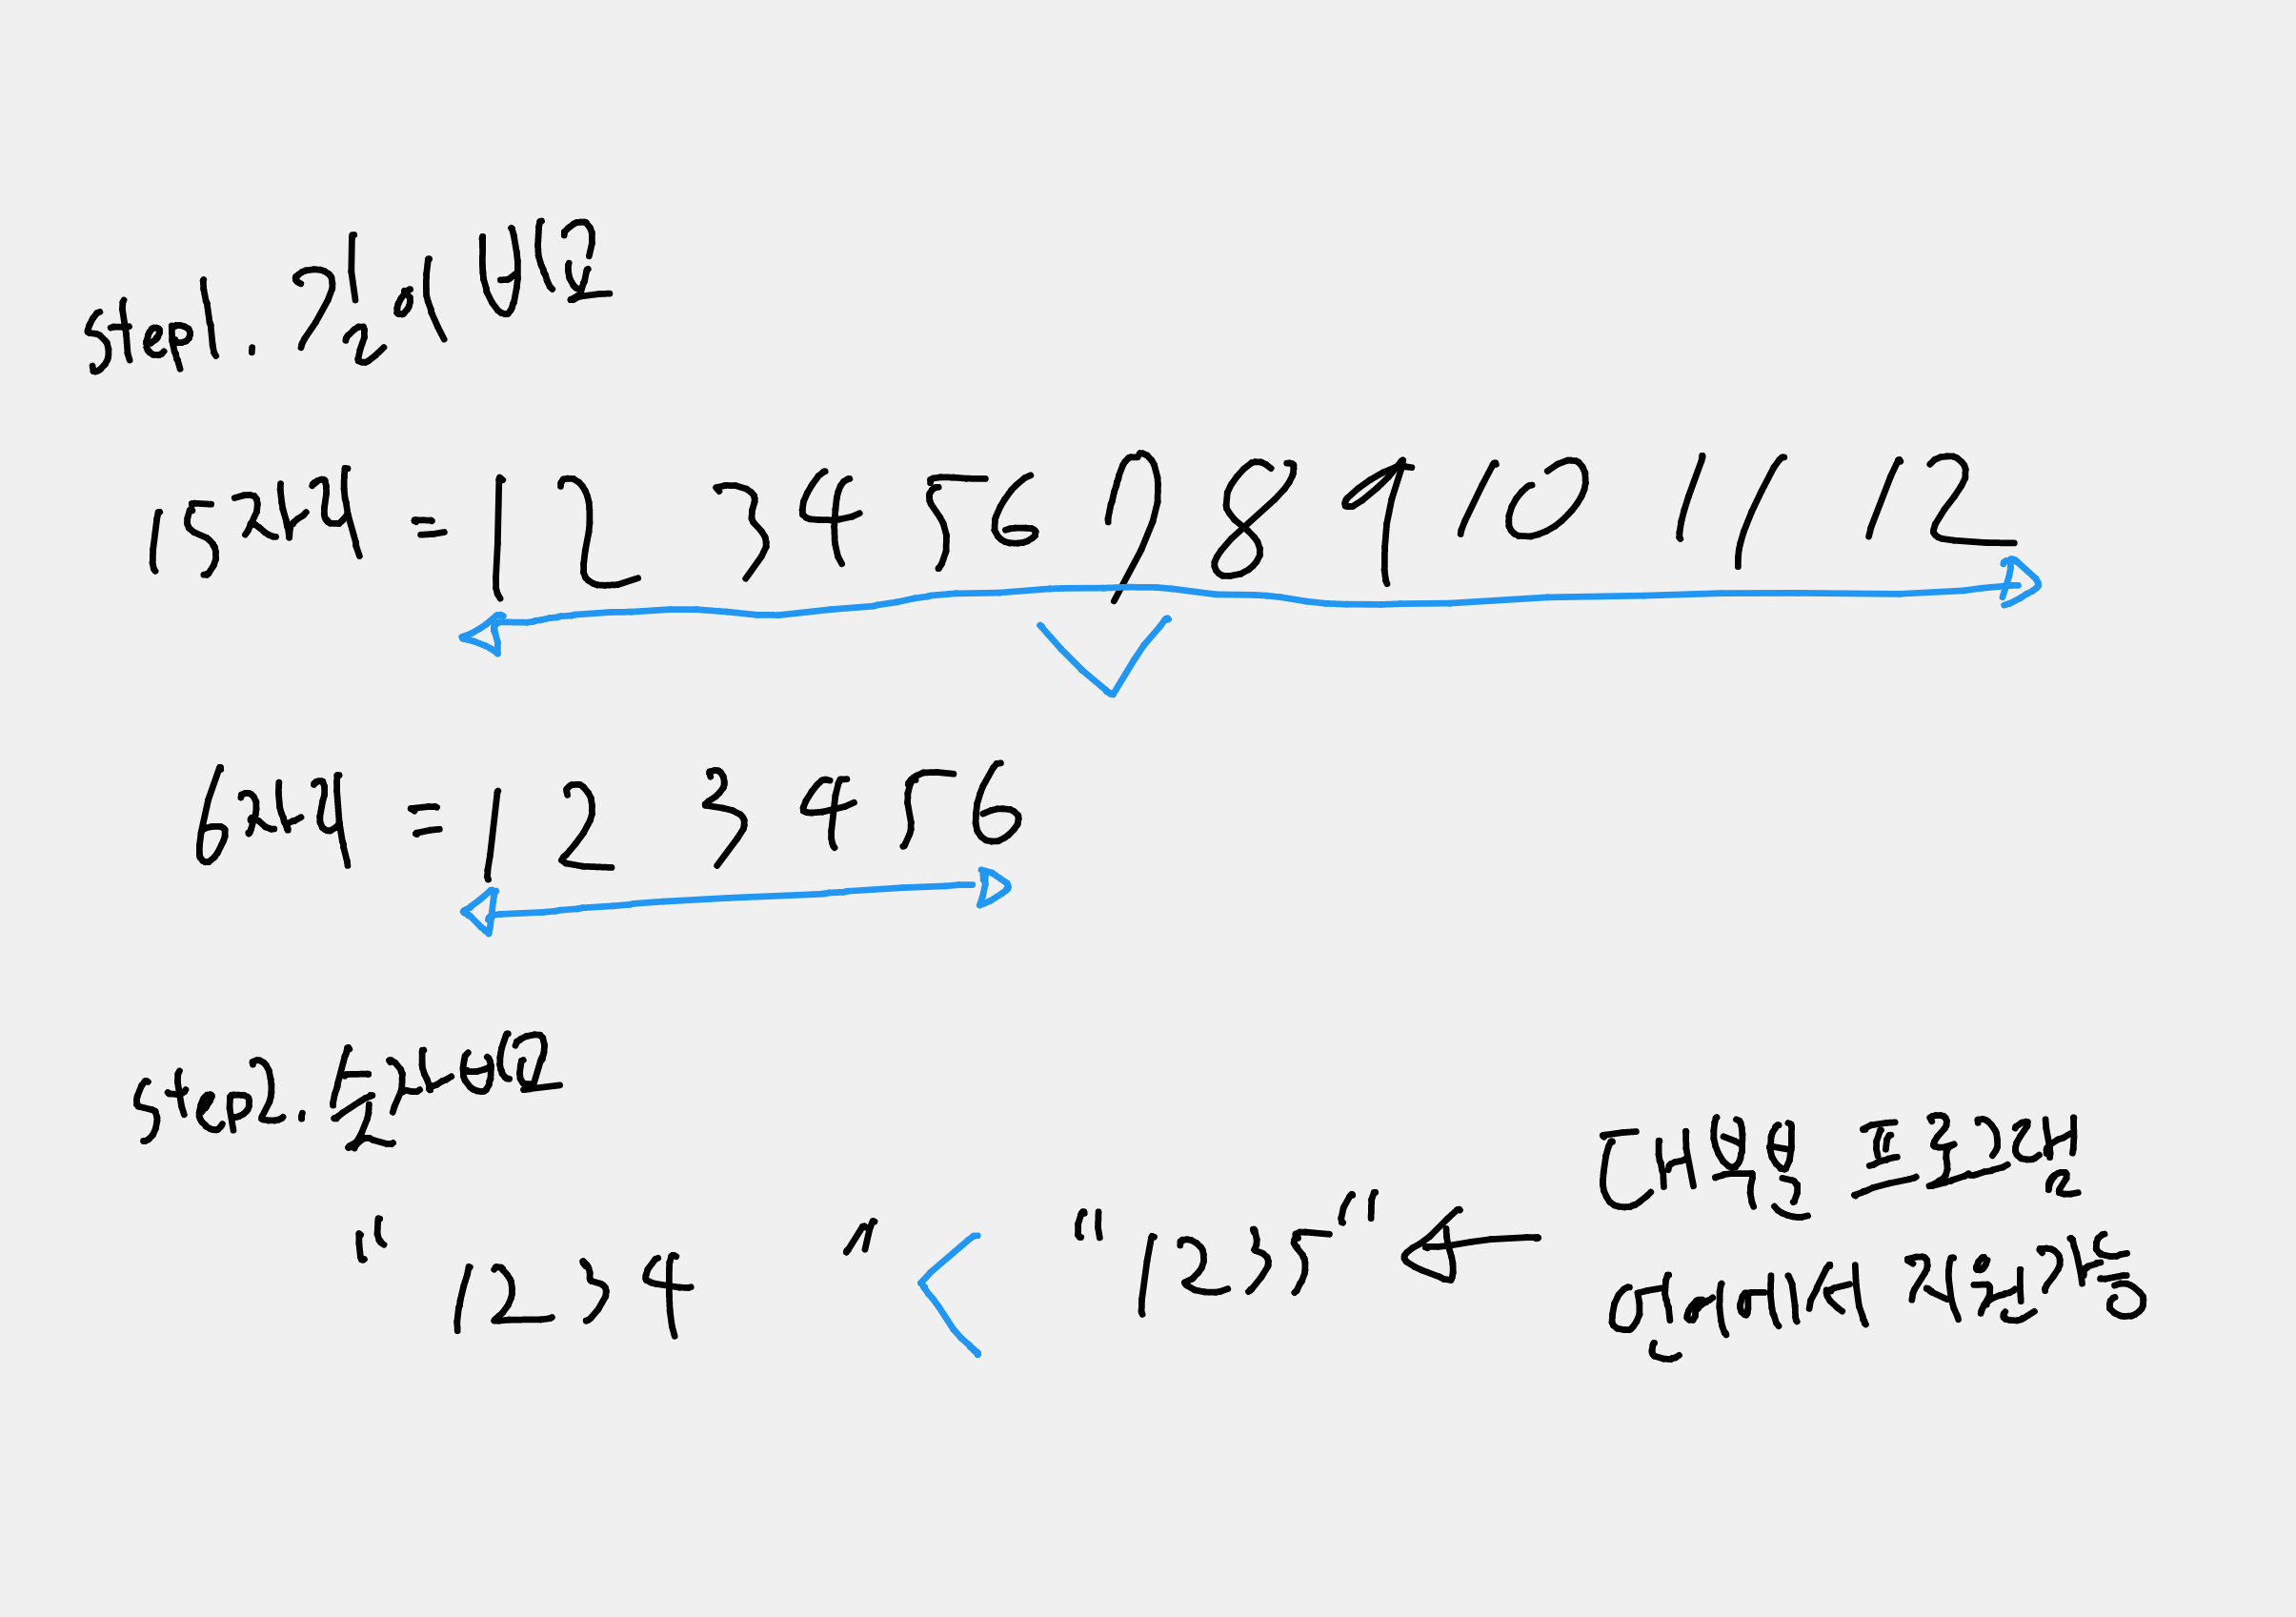 step1. 길이 비교
15자리 = 1 2 3 4 5 6 7 8 9 10 11 12
6자리 = 1 2 3 4 5 6
step2. 숫자 비교
" 1234 " < "1235" ← 대부분 프로그래
언어에서 지원